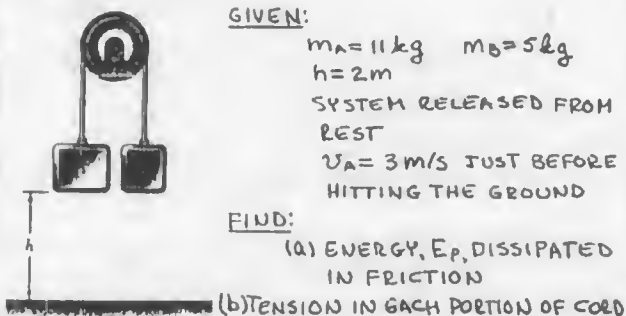 GIVEN:
mA = 11 kg mB = 5 kg
h = 2 m
SYSTEM RELEASED FROM
REST
vA = 3 m/s JUST BEFORE
HITTING THE GROUND
FIND:
(a) ENERGY, Ep, DISSIPATED
IN FRICTION
h
(b) TENSION IN EACH PORTION OF CORD